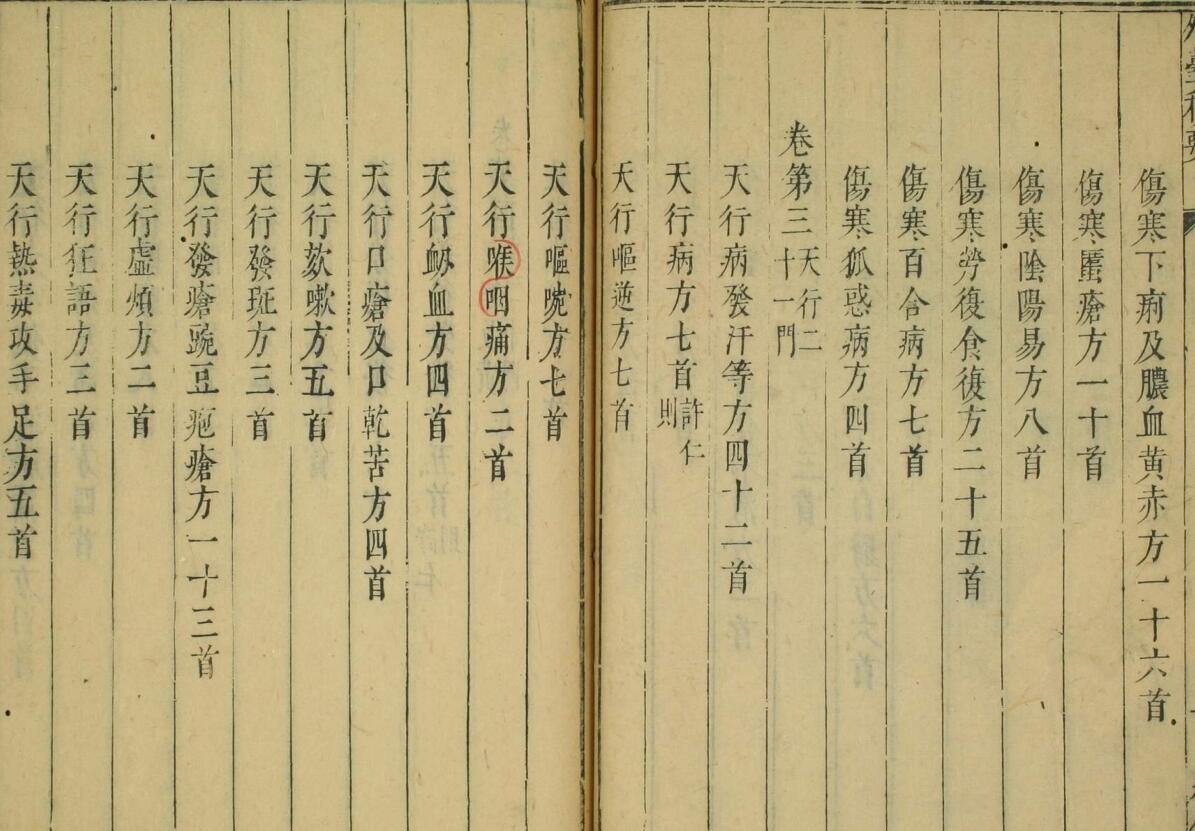 傷寒下痢及膿血黄赤方一十六首
傷寒䘌瘡方一十首
傷寒陰陽易方八首
傷寒勞復食復方二十五首
傷寒百合病方七首
傷寒狐惑病方四首
卷第三 天行二十一門
天行病發汗等方四十二首
天行病方七首 許仁則
天行嘔逆方七首
天行嘔啘方七首
天行喉咽痛方二首
天行衂血方四首
天行口瘡及口乾苦方四首
天行欬嗽方五首
天行發斑方三首
天行發瘡豌豆疱瘡方一十三首
天行虛煩方二首
天行狂語方三首
天行熱毒攻手足方五首